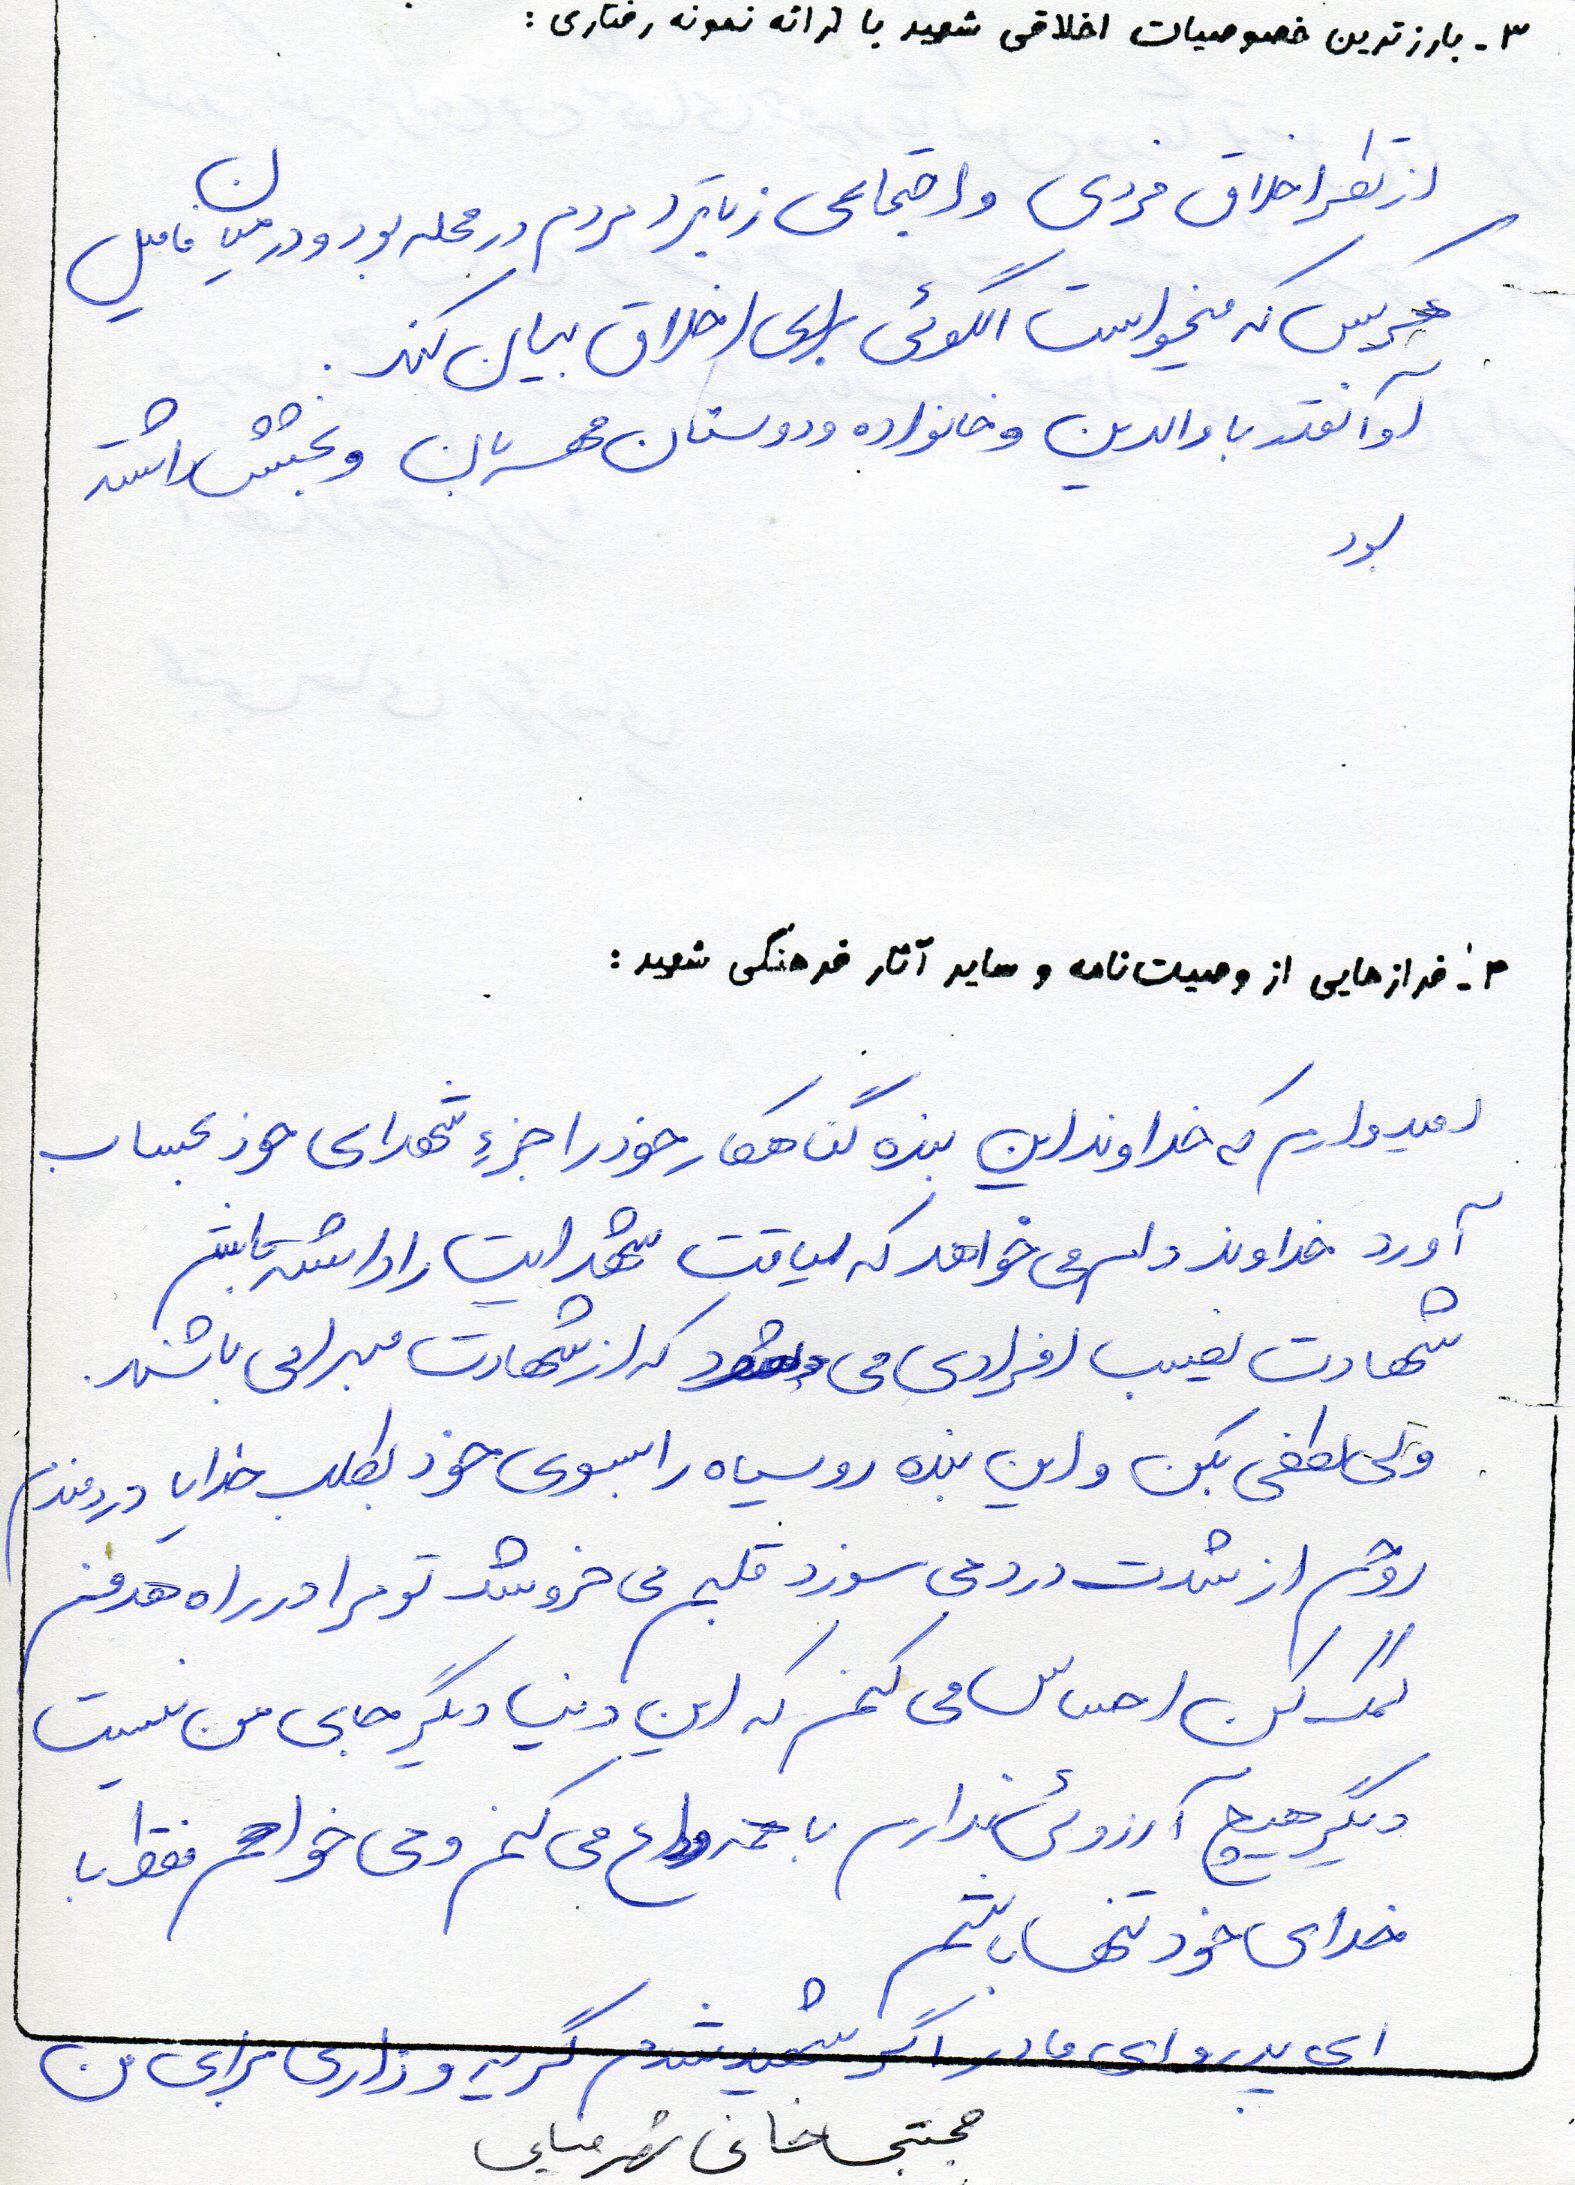 ۳- بارزترین خصوصیات اخلاقی شهید با ارائه نمونه رفتاری:
از نظر اخلاق فردی و اجتماعی زبانزد مردم در محله بود و در میان فامیل
هرکس که میخواست الگوئی برای اخلاق بیان کند.
او آنقدر با والدین و خانواده و دوستان مهربان و بخشش داشته
بود
۴- فرازهایی از وصیت‌نامه و سایر آثار فرهنگی شهید:
امیدوارم که خداوند این بنده گناهکار خود را جزء شهدای خود بحساب
آورد خداوند دلم می خواهد که لیاقت شهدایت را داشته باشم
شهادت نصیب افرادی می شود که از شهادت مبرا می باشند.
ولی لطفی بکن و این بنده روسیاه را بسوی خود بطلب خدایا دردمندم
روحم از شدت درد می سوزد قلبم می خروشد تو مرا در راه هدفم
کمک کن احساس می کنم که این دنیا دیگر جای من نیست
دیگر هیچ آرزوئی ندارم با همه وداع می کنم و می خواهم فقط با
خدای خود تنها باشم
ای پدر و ای مادر اگر شهید شدم گریه و زاری برای من
مجتبی خانی